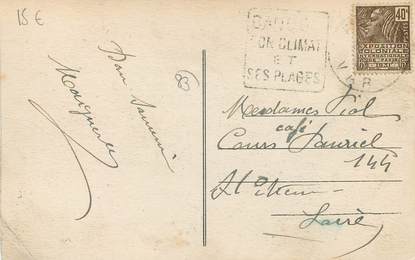 15 €
Bon Souvenir
Marguerite
SON CLIMAT
ET
SES PLAGES
VAR
40c
EXPOSITION
COLONIALE
INTERNATIONALE
PARIS
1931
Mesdames Piol
café
Cours Fauriel
144
St Etienne
Loire